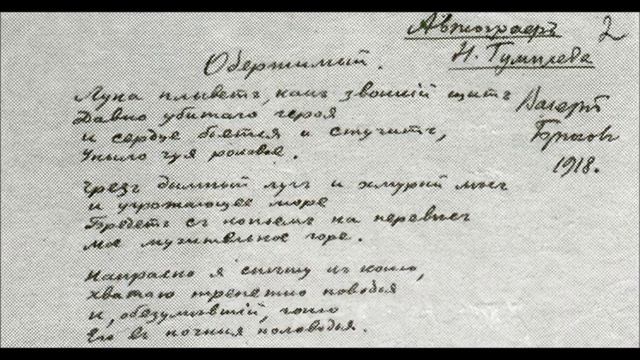 Автографъ 2
Н. Гумилева
Обержимый.
Луна плыветъ, какъ звонкій щитъ
Давно убитаго героя
и сердце бьется и стучитъ,
Уныло чуя роковое.
Валерій
Брюсовъ
1918.
Чрезъ дымный лугъ и хмурый лѣсъ
и угрожающее море
Бредетъ съ копьемъ на перевѣсъ
мое мучительное горе.
Напрасно я спѣшу къ коню,
хватаю трепетно поводья
и, обезумѣвшій, гоню
Его въ ночныя половодья.